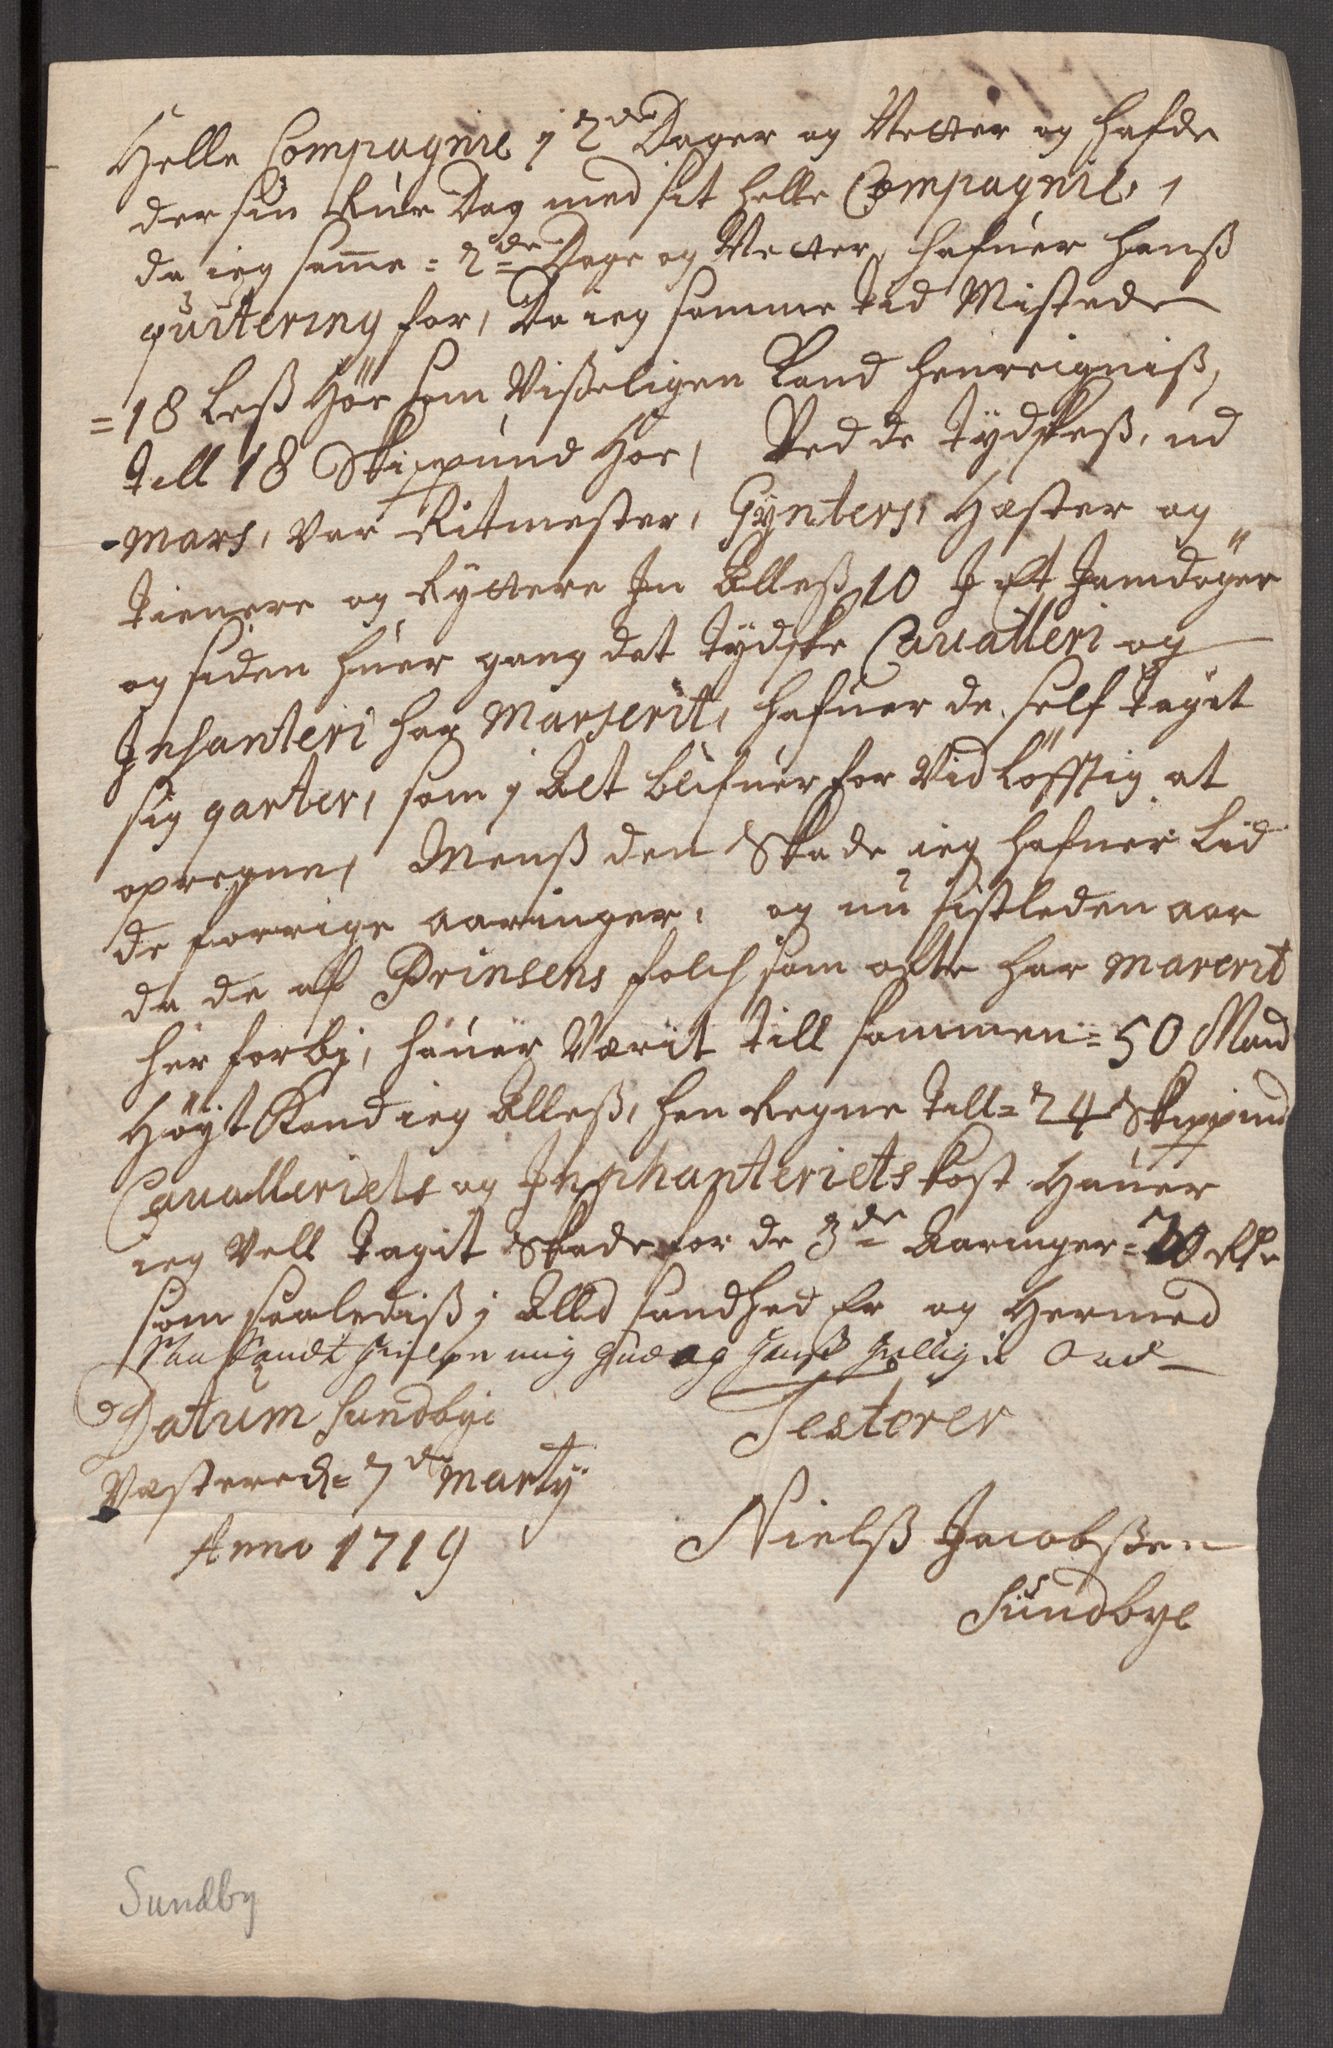 Helle Compagnie j 2de Dager og Netter og hafde
der sin Rue Dag med sit helle Compagnie,
da ieg samme = 2de Dage og Netter, hafuer hanß
quitering for, Da ieg samme tid Mistede
= 18 Leß Hör som Visseligen Kand henreigniß,
till 18 Skippund Hör, Ved de tydskeß, ud
-mars, var Ritmester, Gynters, Hæster og
tienere og Ryttere In Alleß 10 J Et Jamdöger
og siden huer gang det tydske Cauatleri og
Infanteri har Marserit, hafuer de self taget
sig qarter, som j Alt blifuer for Vidlöfftig at
opregne, Menß den Skade ieg hafuer Lid
de forrige aaringer, og nu sistleden aar
da de af Prinsens folch som ofte har marcrit
her forbj, hauer Værit till sammen = 50 Mand
Höyt Kand ieg Alleß, hen Regne till = 24 Skippund
Cauatleriets og Inphanteriets kost Hauer
ieg Vell tagit Skade for de 3de Aaringer = 70 Rdr
som saalediß j All sandhed Er og Hermed
Saa Sandt hielpe mig Gud og Hanß hellige Ord
Datum Sundbye Testerer
Væstereng = 7de Martij
Anno 1719 Nielß Jacobßen
Sundbye
Sundby